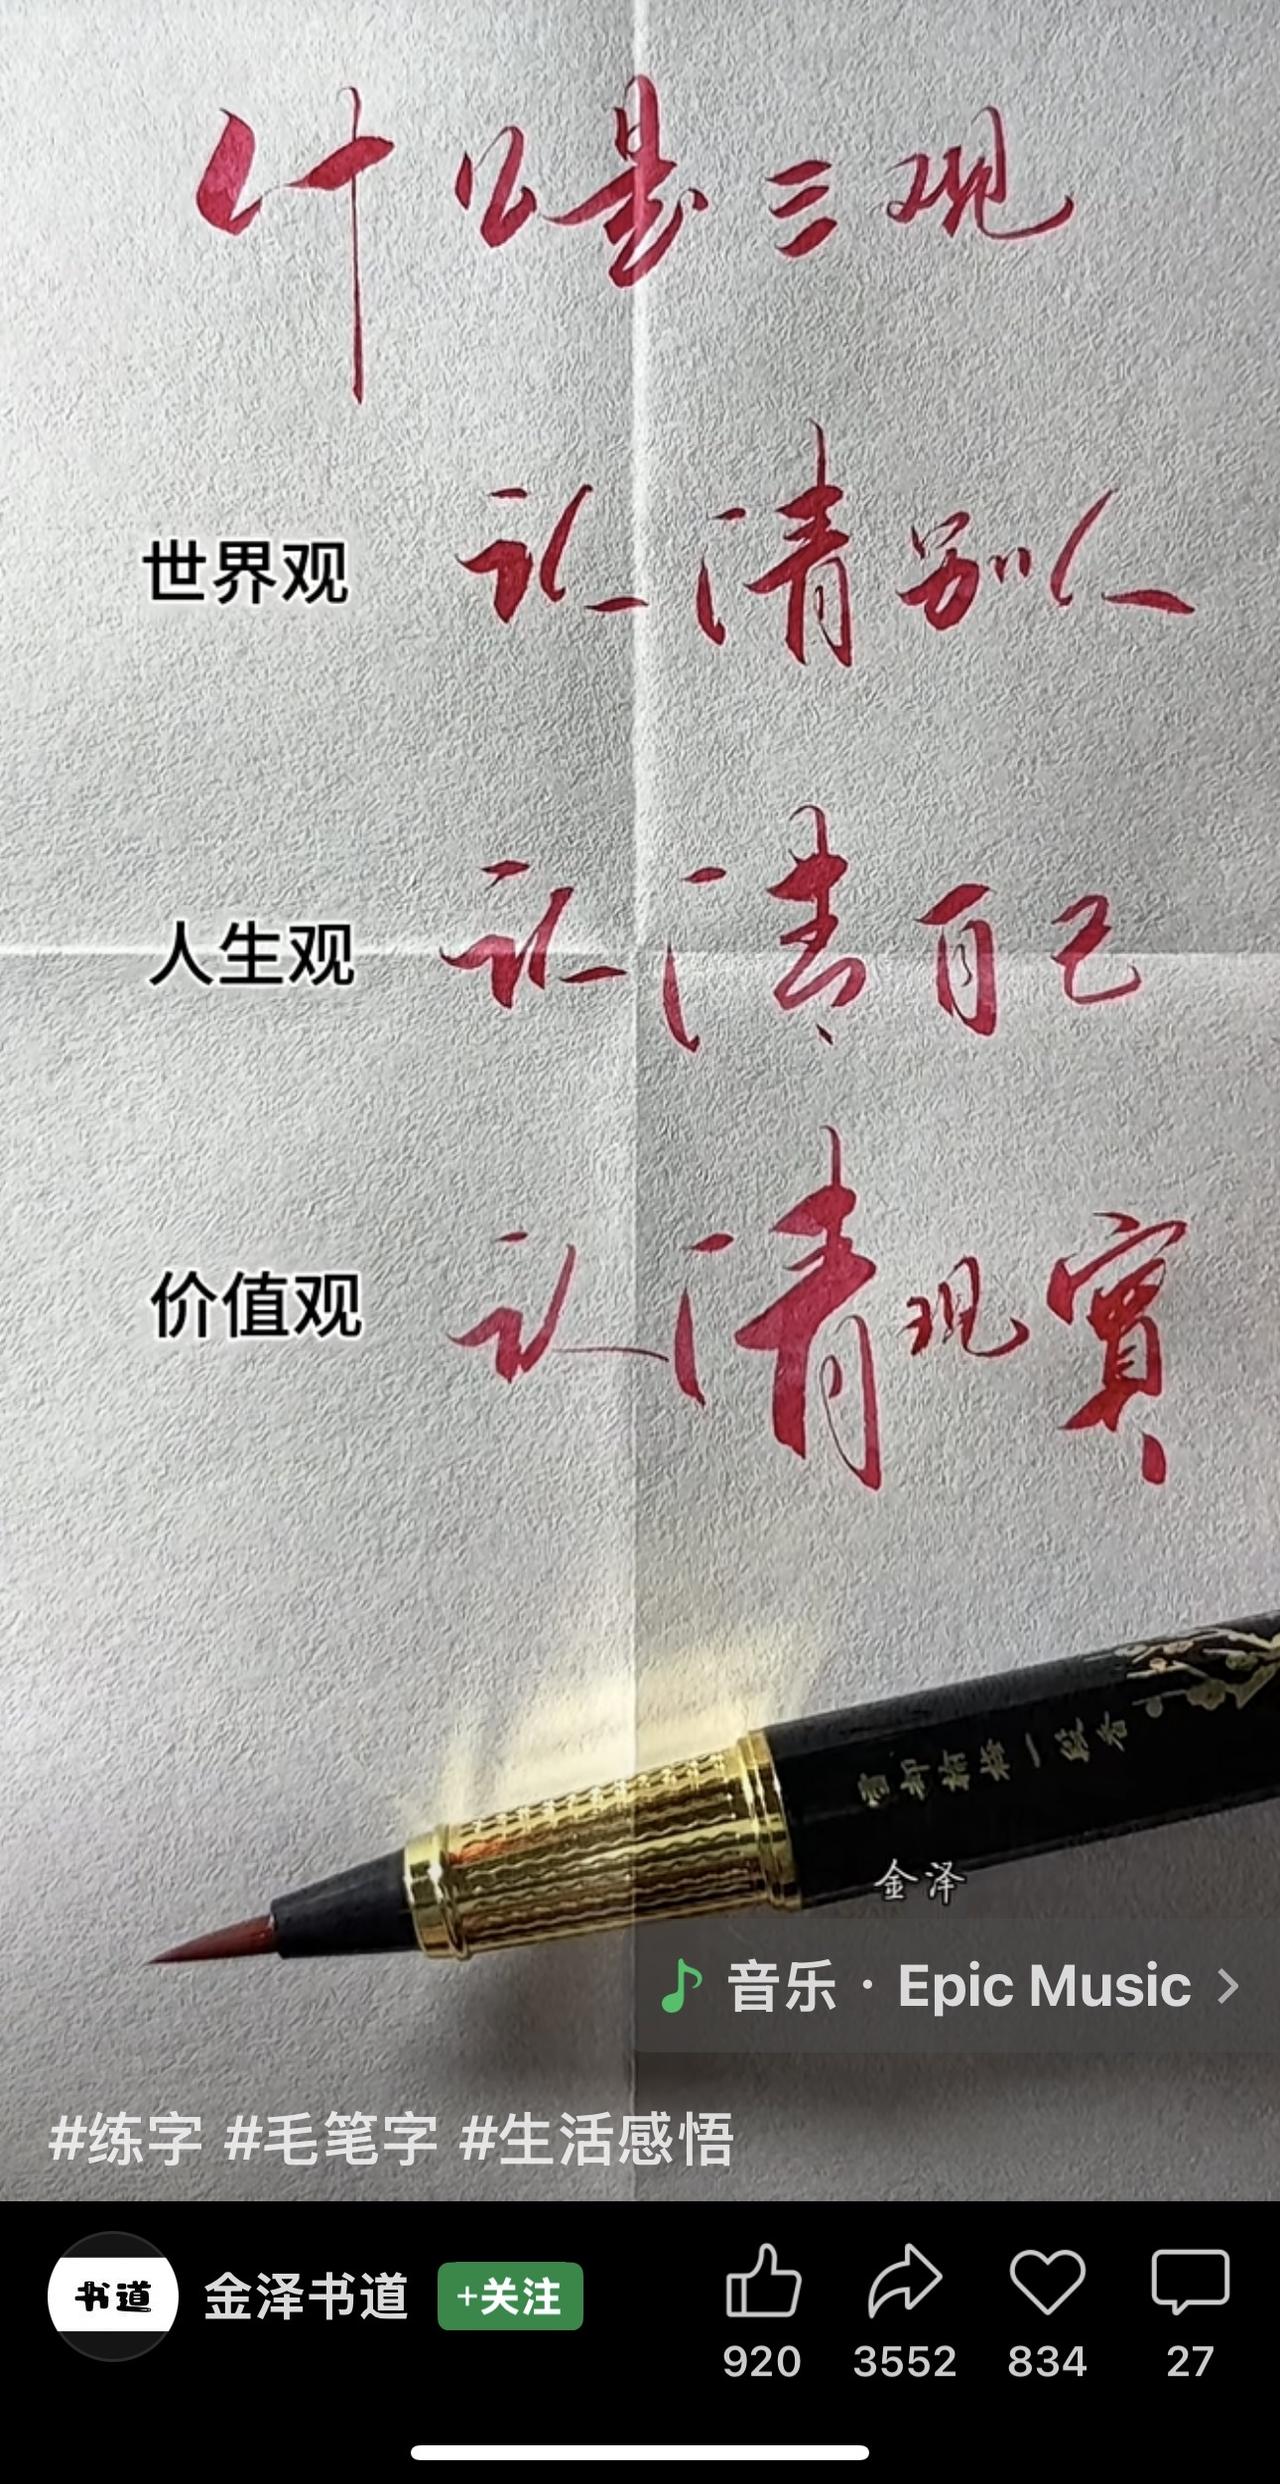 什么是三观
世界观 认清别人
人生观 认清自己
价值观 认清现實
雪却输梅一段香
金泽
音乐 · Epic Music
#练字 #毛笔字 #生活感悟
书道 金泽书道 +关注
920 3552 834 27